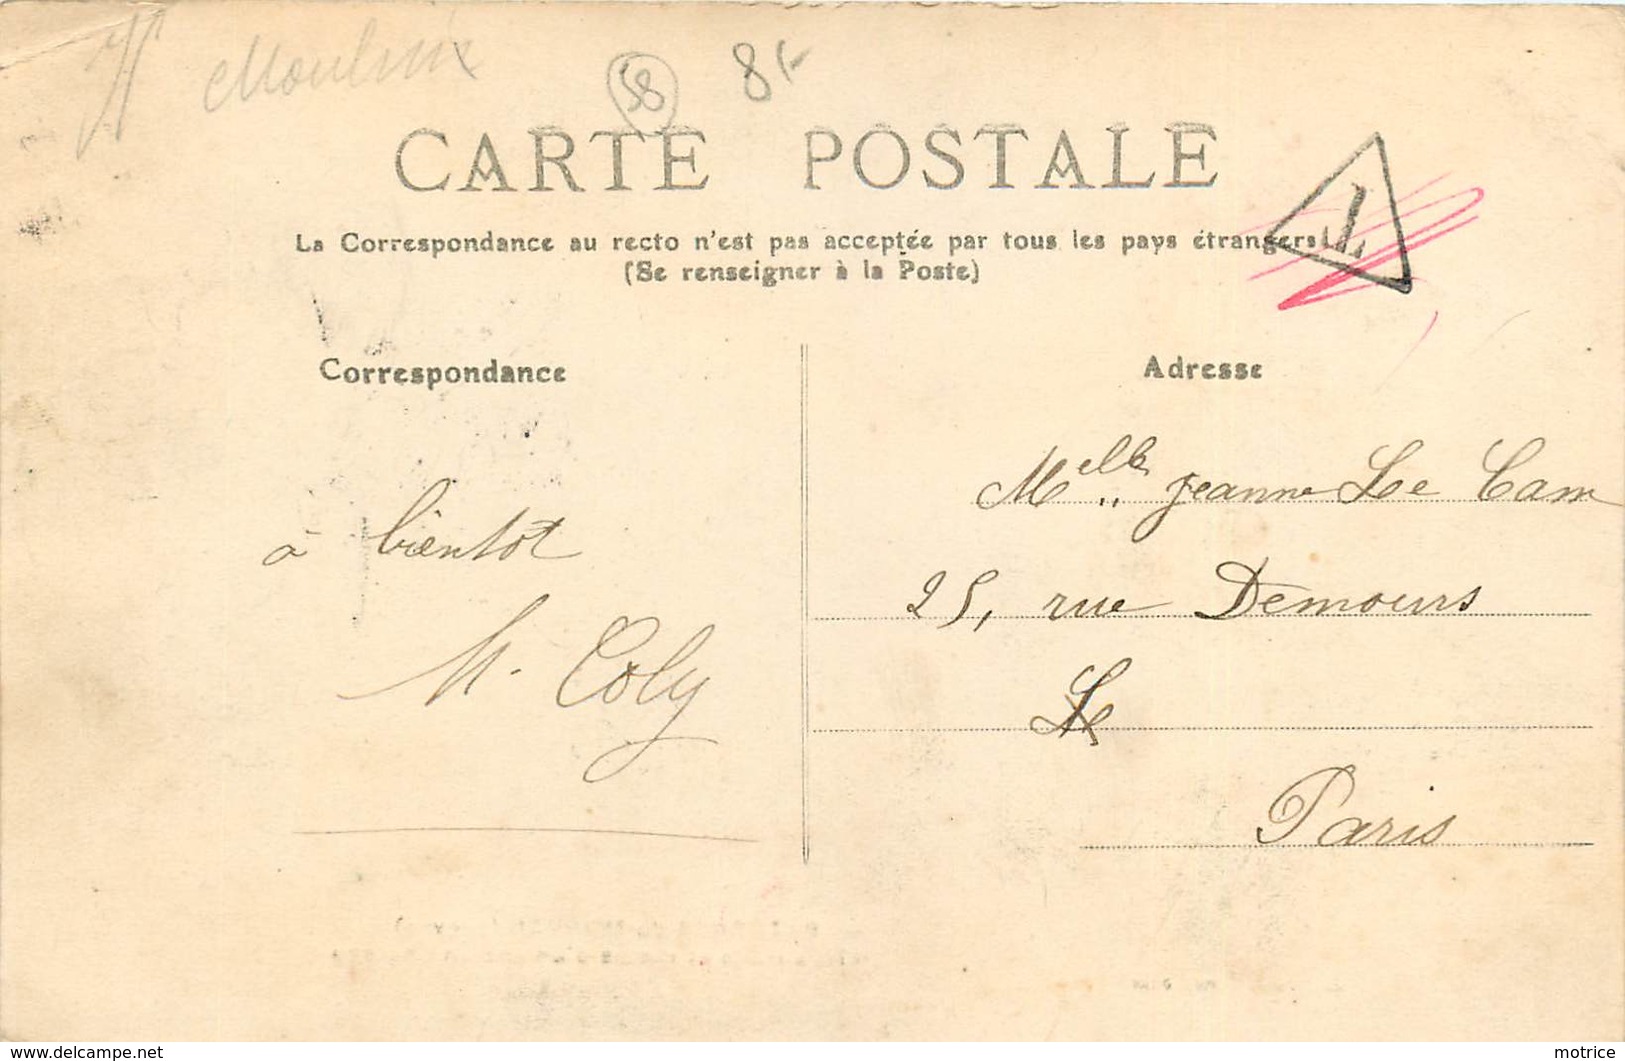 Moulin
58
8
CARTE POSTALE
T
La Correspondance au recto n'est pas acceptée par tous les pays étrangers
(Se renseigner à la Poste)
Correspondance
Adresse
à bientot
M. Coly
Melle Jeanne Le Cam
25, rue Demours
Le
Paris
www.delcampe.net
motrice